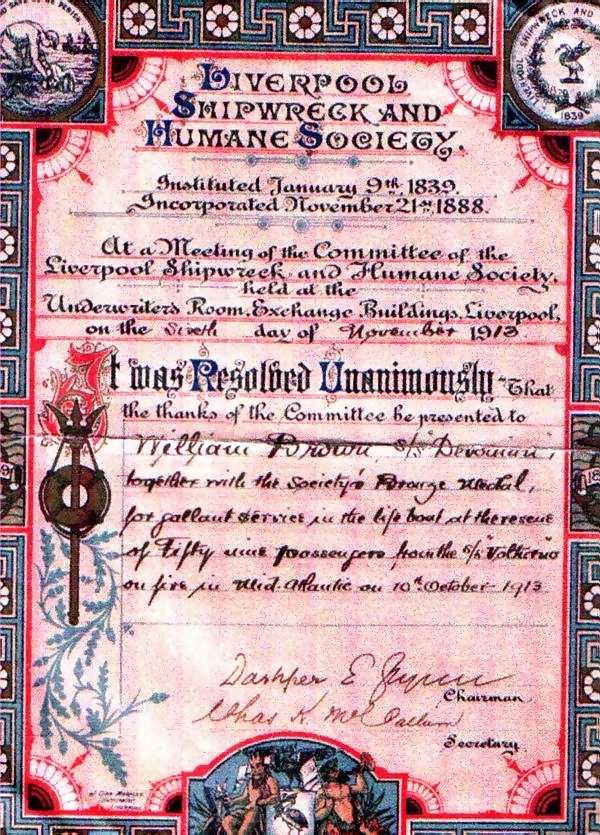 LIVERPOOL
SHIPWRECK AND
HUMANE SOCIETY.
Instituted January 9th 1839.
Incorporated November 21st 1888.
At a Meeting of the Committee of the
Liverpool Shipwreck and Humane Society,
held at the
Underwriters Room, Exchange Buildings, Liverpool,
on the Sixth day of November 1913
It was Resolved Unanimously That
the thanks of the Committee be presented to
William Brown, s/s "Devonian",
together with the Society's Bronze Medal,
for gallant service in the life boat at the rescue
of Fifty nine passengers from the s/s "Volturno"
on fire in Mid-Atlantic on 10th October 1913
Chairman
Secretary
LIVERPOOL SHIPWRECK AND
1839